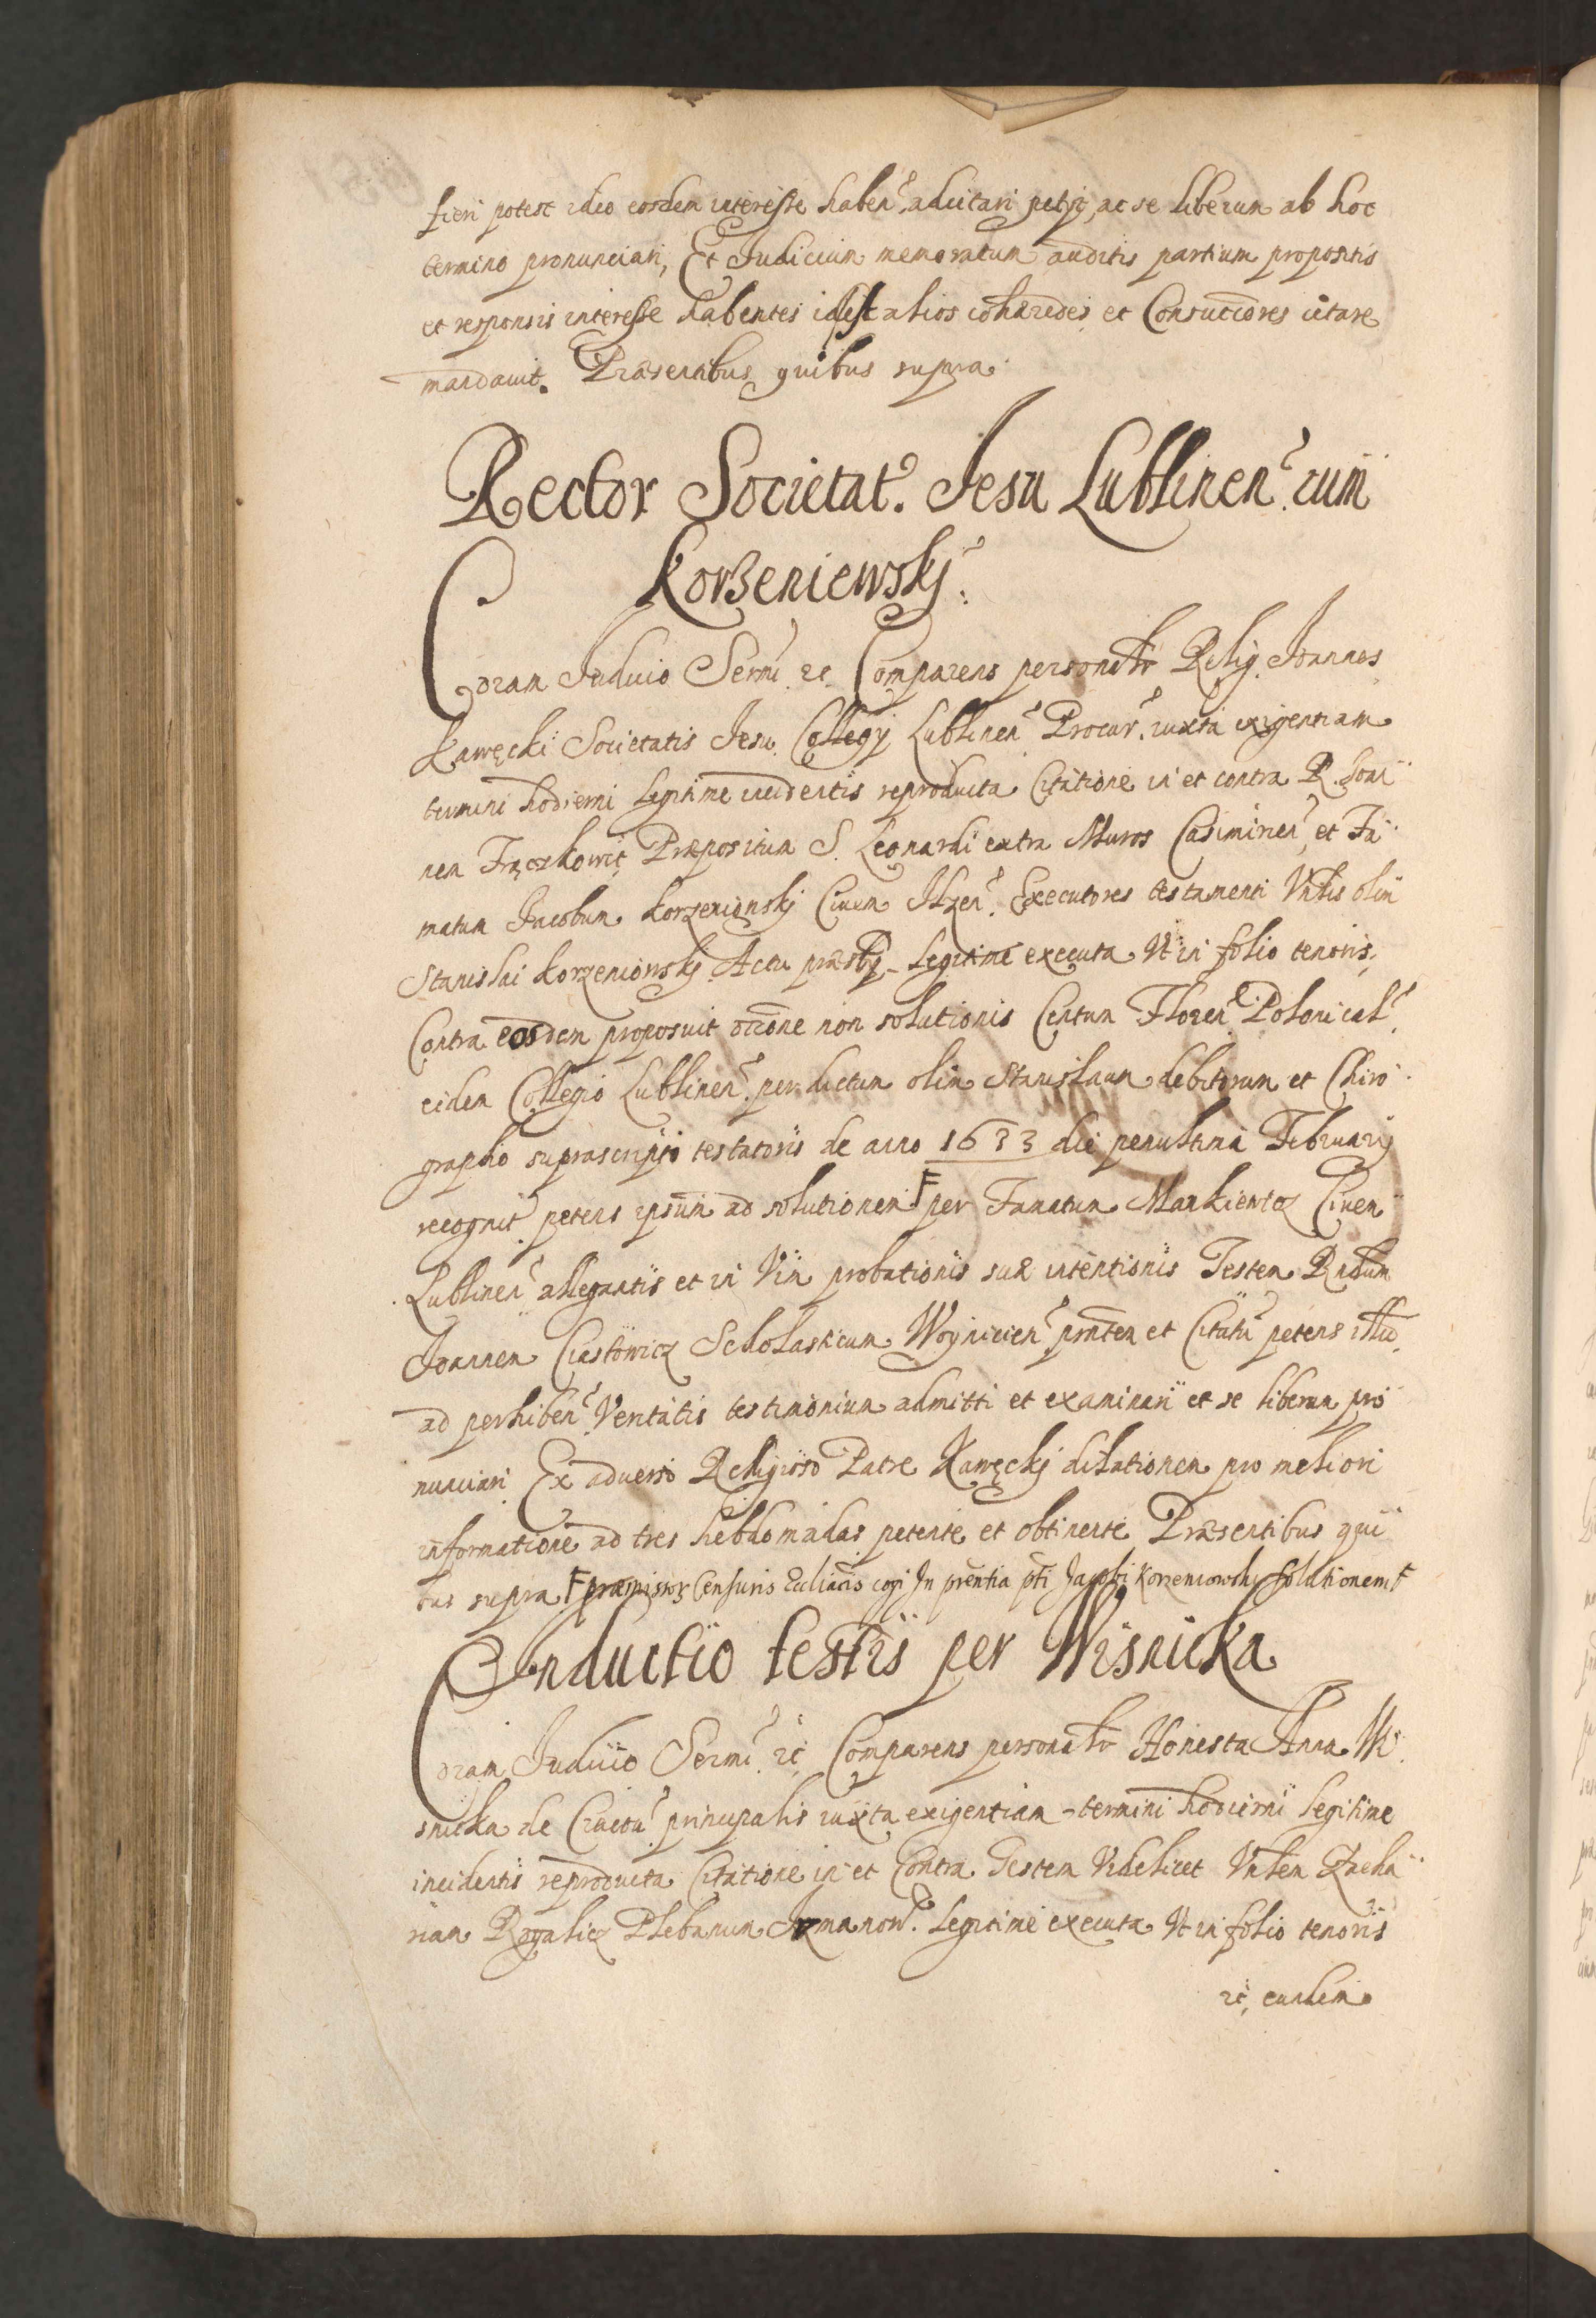 fieri potest ideo eosdem interesse haben. adcitari petijt, ac se liberum ab hoc
termino pronunciari, Et Judicium memoratum auditis partium propositis
et responsis interesse habentes id est alios cohæredes et Consuctores citare
mandavit. Præsentibus quibus supra.
Rector Societat. Jesu Lublinen. cum
Korzeniewskj.
Coram Judicio Sermi. etc. Comparens personaltr Relig. Joannes
Kawęcki Societatis Jesu Collegij Lublinen. Procur. iuxta exigentiam
termini hodierni legitime incidentis reproducta Citatione in et contra R. Joan
nem Frączkowic Præpositum S. Leonardi extra Muros Casimirien. et Fa
matum Jacobum Korzeniowskj Civem Ilzen. Executores testamenti Vnlis olim
Stanislai Korzeniowskj Actu præsbj. legitime executa Vt in folio tenoris,
Contra eosdem proposuit occone non solutionis Centum Floren. Polonical.
eidem Collegio Lublinen. per dictum olim Stanislaum debitorum et Chiro
grapho suprascripto testatoris de anno 1633 die penultima Februarij
recognit. petens ipsum ad solutionem per Famatum Markiewicz Civem
Lublinen. allegantis et in Vim probationis suæ intentionis Testem Rndum
Joannem Ciastowicz Scholasticum Woynicien. pntem et Citatu. petens illu
ad perhiben. Veritatis testimonium admitti et examinari et se liberum pro
nunciari. Ex adverso Religioso Patre Kawęckj dilationem pro meliori
informatione ad tres hebdomadas petente et obtinente. Præsentibus qui
bus supra. præmissor Censuris Eccliacis cogi In prentia pti Jacobi Korzeniowskj solutionem
Conductio testis per Wisnicka
Coram Judicio Sermi. etc. Comparens personaltr Honesta Anna Wi
snicka de Cracou. principalis iuxta exigentiam termini hodierni legitime
incidentis reproducta Citatione in et Contra Testem Videlicet Vnlem Zacha
riam Rogalicz Plebanum Irzmanow. legitime executa Vt in folio tenoris
etc, eundem